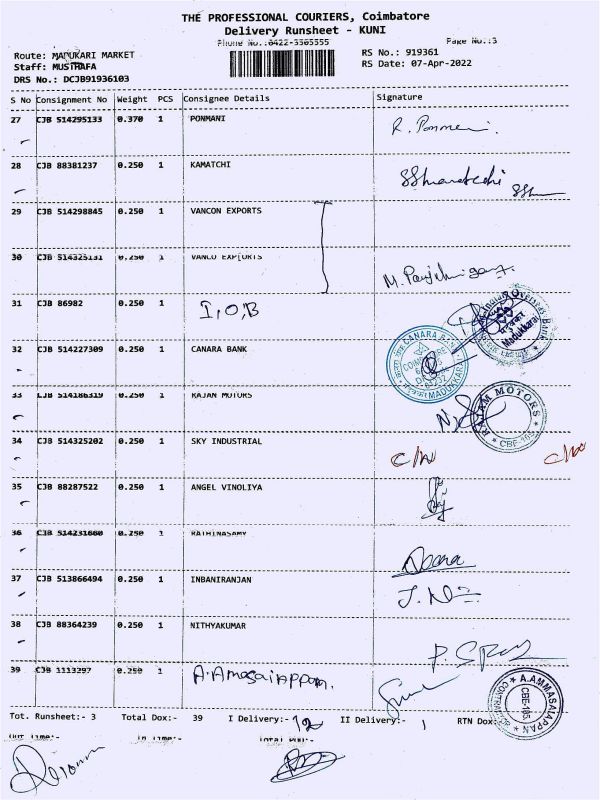 THE PROFESSIONAL COURIERS, Coimbatore
Delivery Runsheet - KUNI
Phone No.:0422-3565555 Page No.:3
Route: MADUKARI MARKET RS No.: 919361
Staff: MUSTHAFA RS Date: 07-Apr-2022
DRS No.: DCJB91936103
S No Consignment No Weight PCS Consignee Details Signature
27 CJB 514295133 0.370 1 PONMANI
28 CJB 88381237 0.250 1 KAMATCHI
29 CJB 514298845 0.250 1 VANCON EXPORTS
30 CJB 514325131 0.250 1 VANCO EXPORTS
31 CJB 86982 0.250 1 I,O,B
32 CJB 514227309 0.250 1 CANARA BANK
33 CJB 514186319 0.250 1 RAJAN MOTORS
34 CJB 514325202 0.250 1 SKY INDUSTRIAL
35 CJB 88287522 0.250 1 ANGEL VINOLIYA
36 CJB 514231660 0.250 1 RATHINASAMY
37 CJB 513866494 0.250 1 INBANIRANJAN
38 CJB 88364239 0.250 1 NITHYAKUMAR
39 CJB 1113297 0.250 1 A.Amasaiappan.
Tot. Runsheet:- 3 Total Dox:- 39 I Delivery:- 12 II Delivery:- 1 RTN Dox:
Out Time:- In Time:- Total POD:-
CANARA BANK
MADUKKARAI
Indian Overseas Bank
Madukkarai
RAJAM MOTORS
CBE-105
A.AMMASAIAPPAN
CBE-105
CONTRACTOR